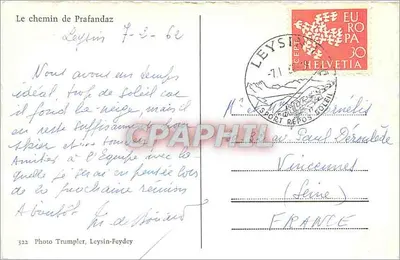 Le chemin de Prafandaz
Leysin 7-3-62
Nous avons un temps
idéal trop de soleil car
il fond la neige, mais il
en reste suffisamment pour
skier
Amitiés à l'équipe avec la
quelle je serai en pensée lors
de la prochaine réunion
A bientôt
522 Photo Trumpler, Leysin-Feydey
LEYSIN
SPORT REPOS SOLEIL
EUROPA
CEPT
30
HELVETIA
CPAPHIL
Paul Déroulède
Vincennes
(Seine)
FRANCE